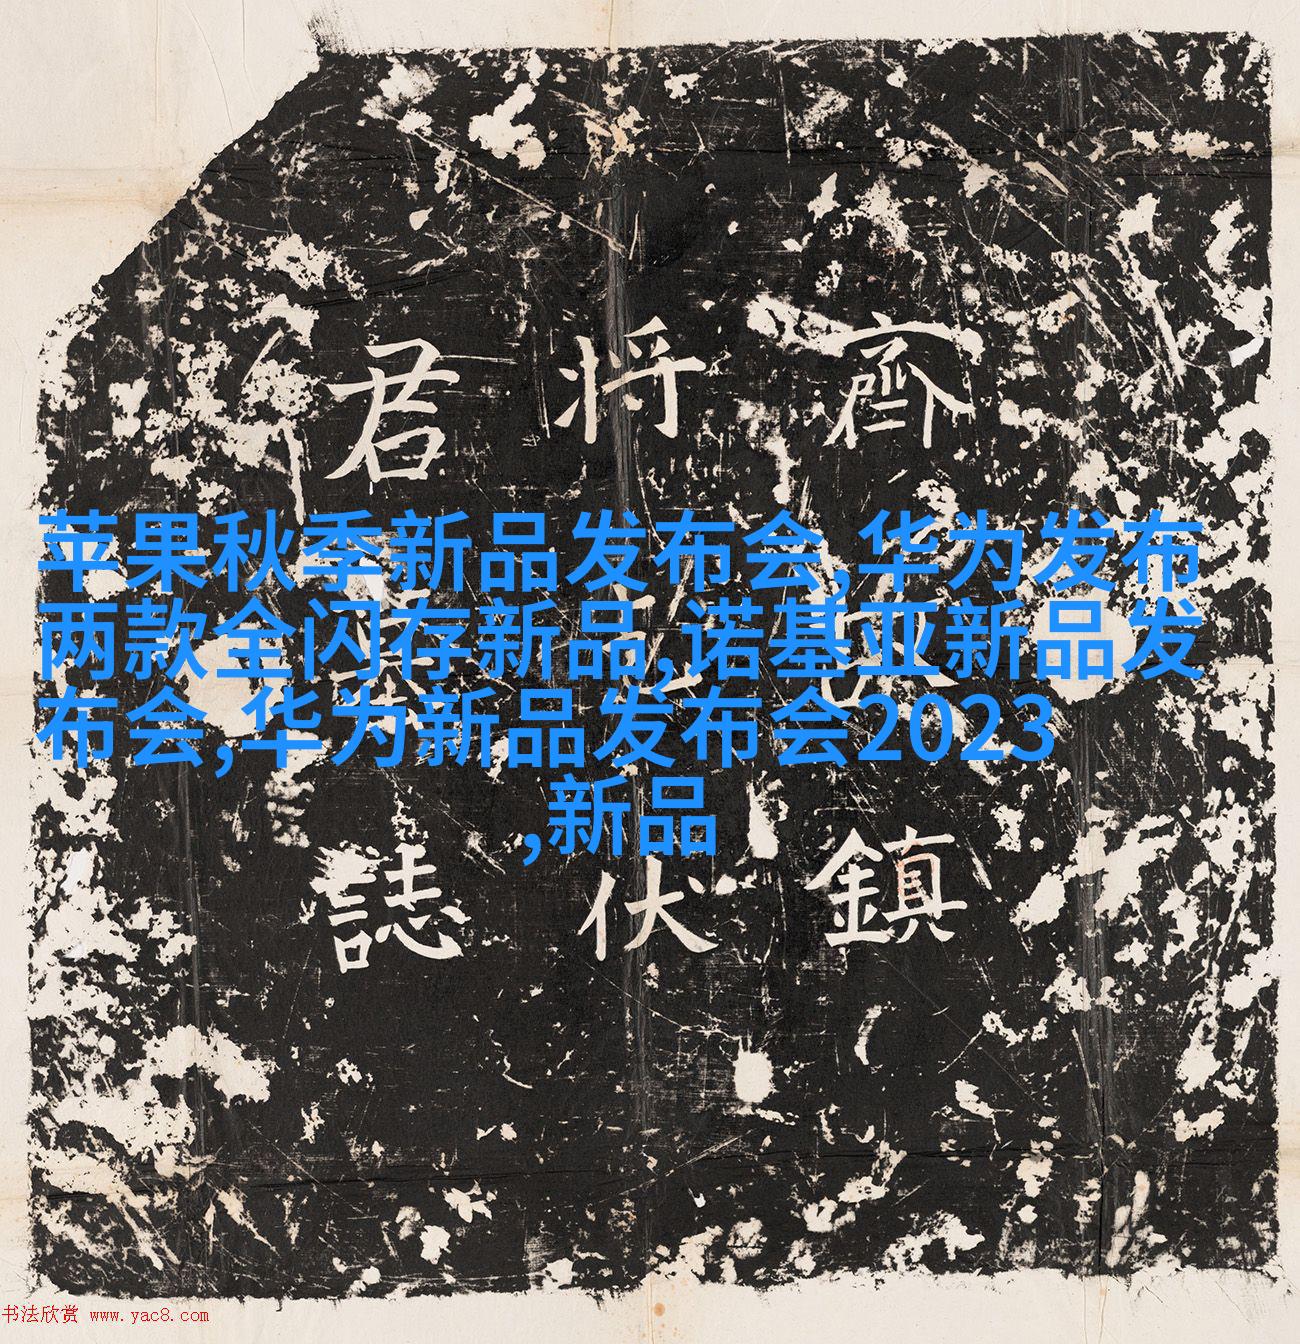 齊
鎮
将
伏
君
誌
苹果秋季新品发布会,华为发布
两款全闪存新品,诺基亚新品发
布会,华为新品发布会2023
,新品
书法欣赏 www.yac8.com